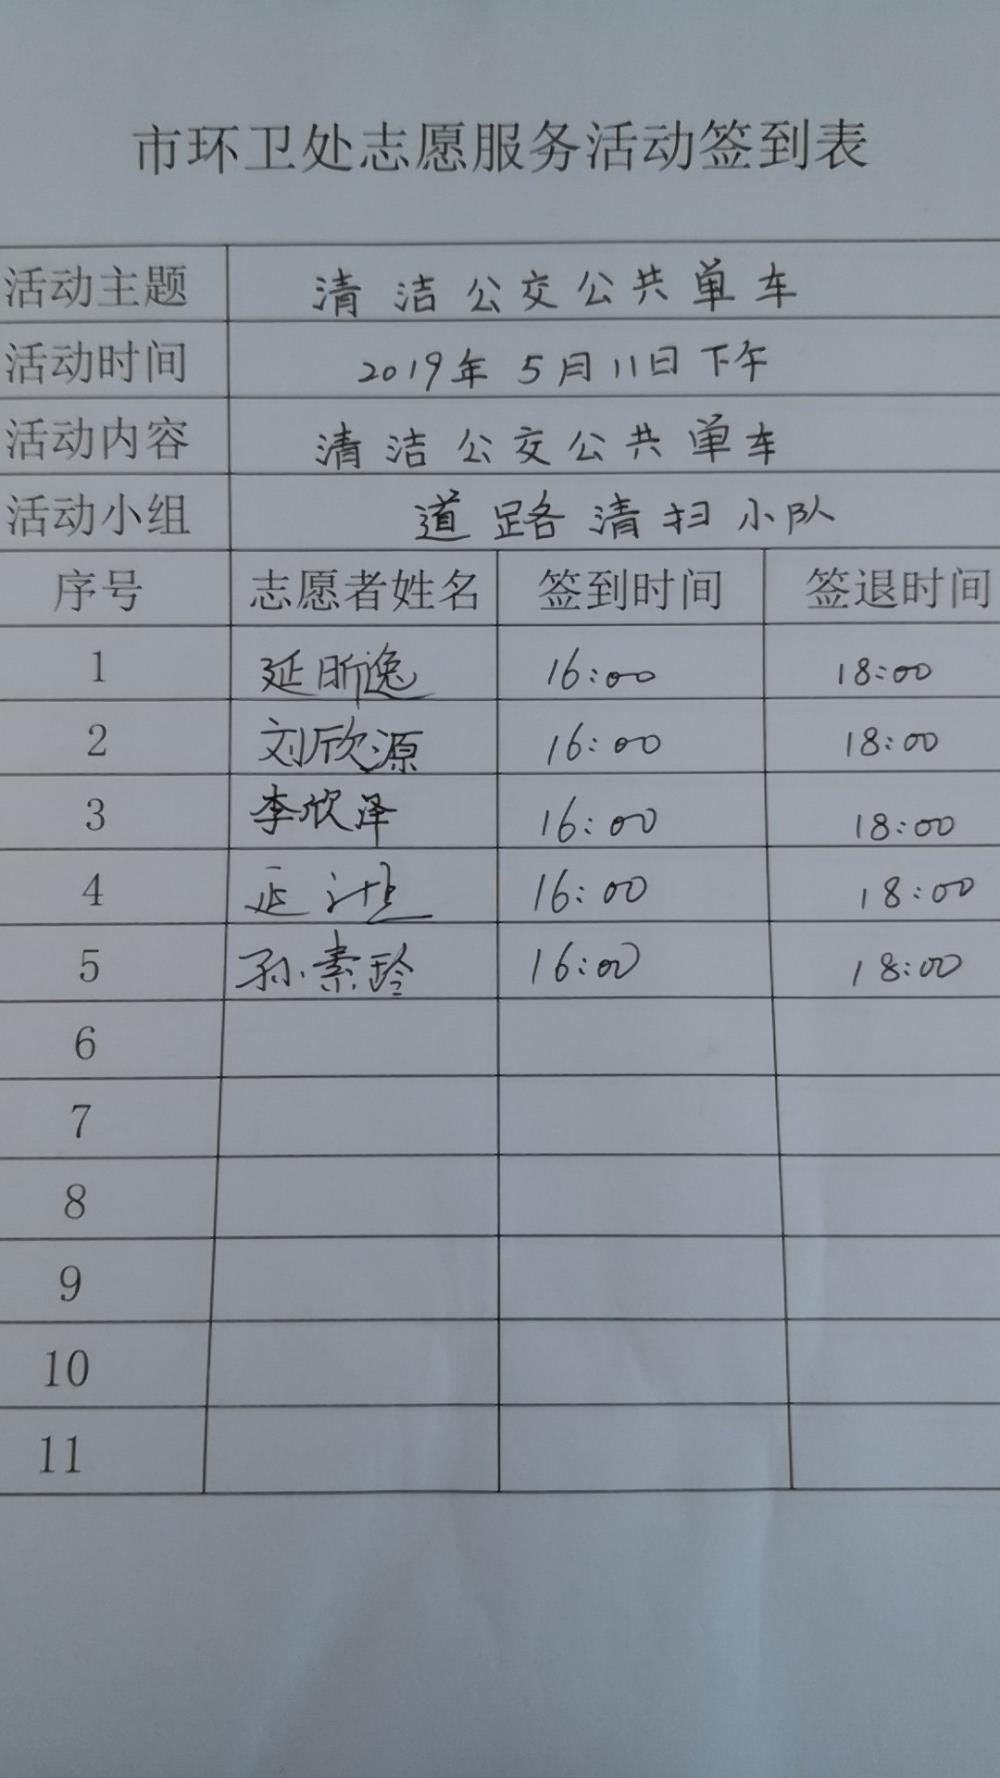 市环卫处志愿服务活动签到表
活动主题 清洁公交公共单车
活动时间 2019年5月11日下午
活动内容 清洁公交公共单车
活动小组 道路清扫小队
序号 志愿者姓名 签到时间 签退时间
1 延昕逸 16:00 18:00
2 刘欣源 16:00 18:00
3 李欣泽 16:00 18:00
4 延 16:00 18:00
5 孙素玲 16:00 18:00
6
7
8
9
10
11